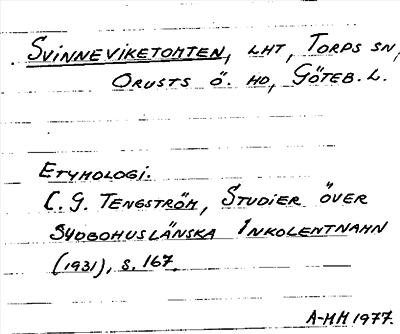 SVINNEVIKETOMTEN, LHT, TORPS SN,
ORUSTS Ö. HD, GÖTEB. L.
ETYMOLOGI.
C. G. TENGSTRÖM, STUDIER ÖVER
SYDBOHUSLÄNSKA INKOLENTNAMN
(1931), S. 167.
A-MH 1977.